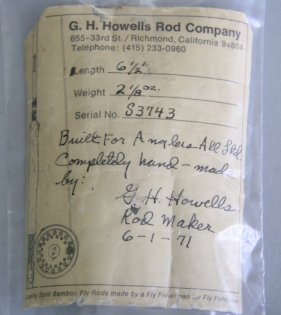 G. H. Howells Rod Company
655-33rd St. / Richmond, California 94804
Telephone: (415) 233-0960
Length 6½'
Weight 2⅛ oz.
Serial No. S3743
Built For Anglers All Ltd.
Completely hand-made
by:
G. H. Howells
Rod Maker
6-1-71
Split Bamboo Fly Rods made by a Fly Fisherman for Fly